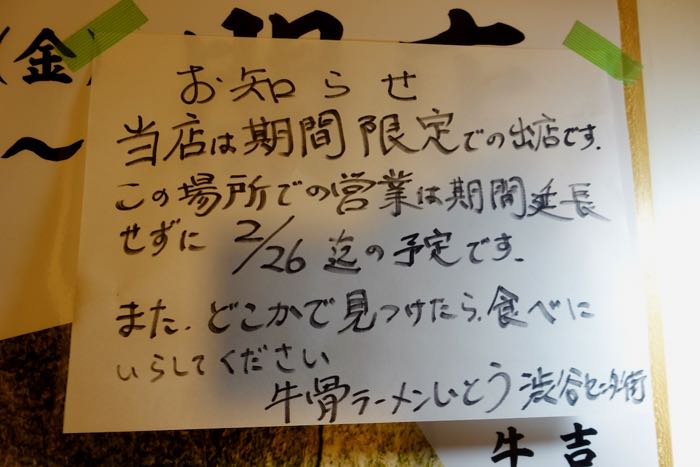 (金)
～
お知らせ
当店は期間限定での出店です.
この場所での営業は期間延長
せずに 2/26 迄の予定です.
また.どこかで見つけたら,食べに
いらしてください
牛骨ラーメンいとう 渋谷センター街
牛吉